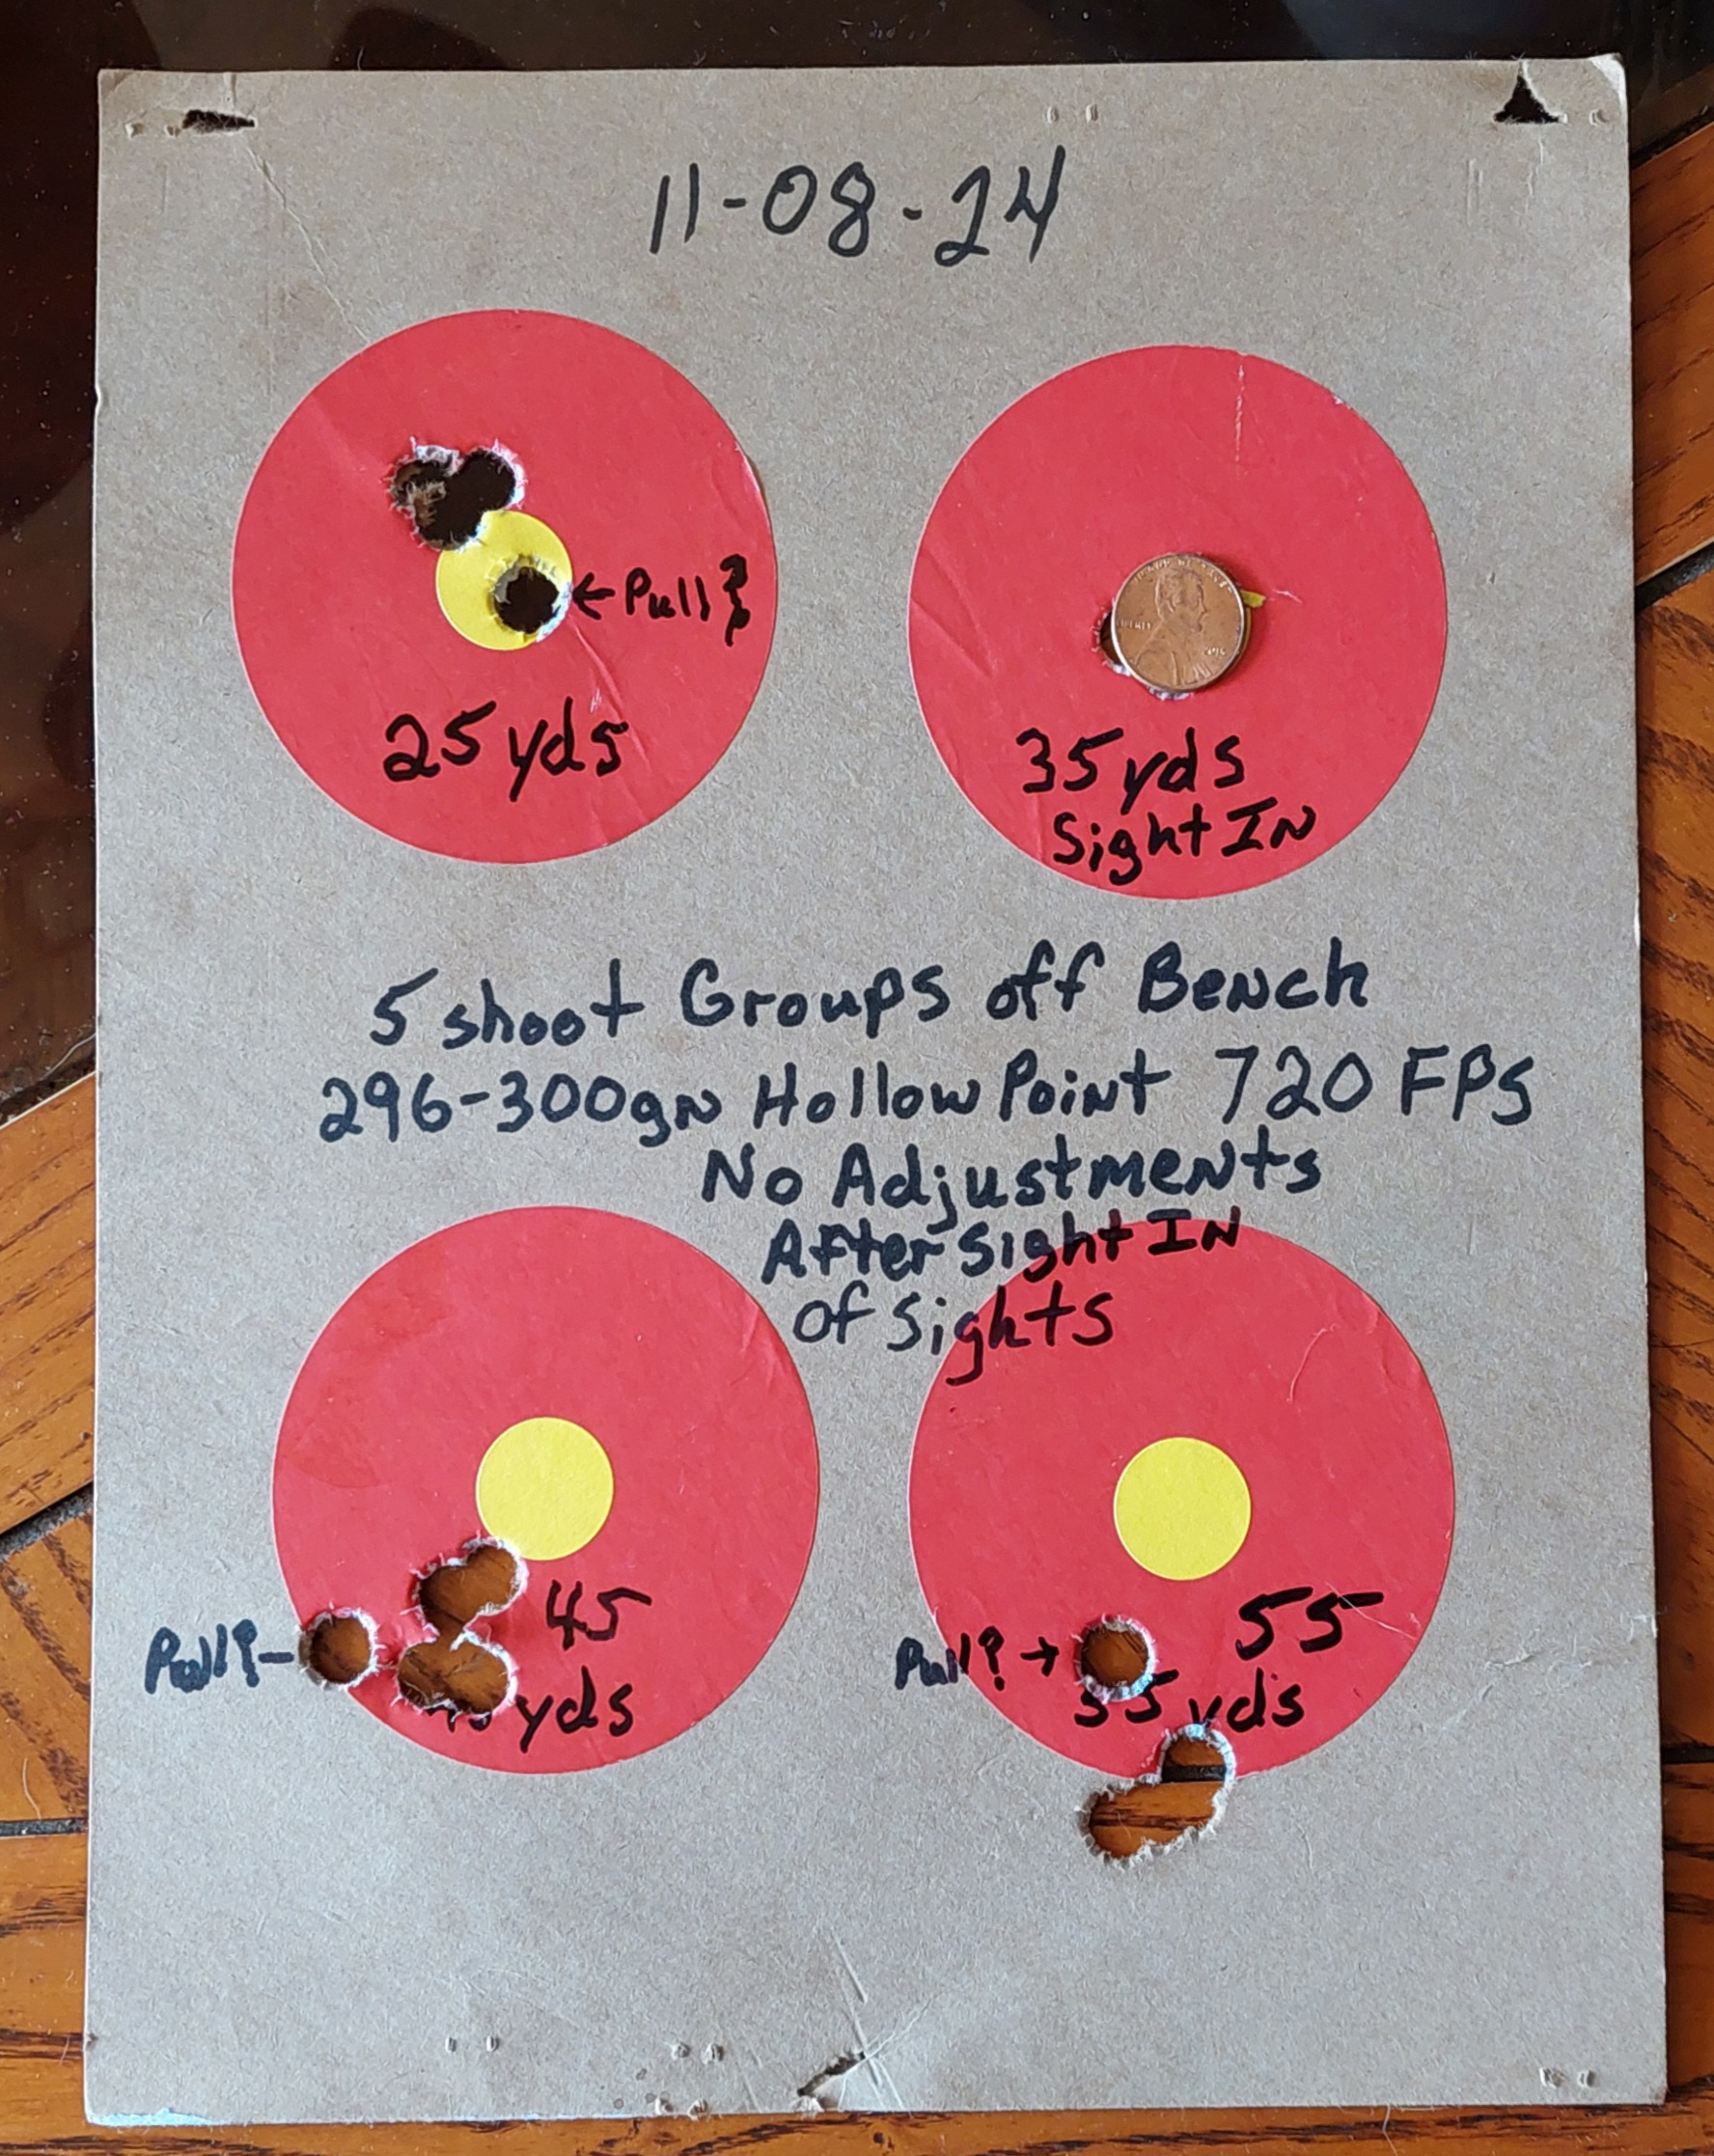 11-08-24
←Pull?
25 yds
35 yds
Sight IN
5 shoot Groups off Bench
296-300gn Hollow Point 720 FPS
No Adjustments
After Sight IN
of Sights
45
Pull?-
yds
55
Pull? →
55 yds